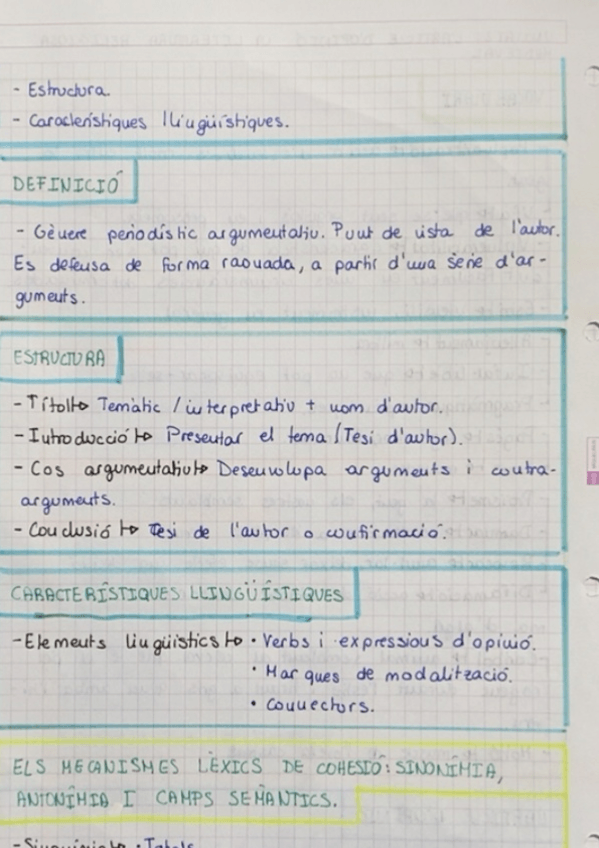 - Estructura.
- Característiques lligüístiques.
DEFINICIÓ
- Gènere periodístic argumentatiu. Punt de vista de l'autor.
Es defensa de forma raonada, a partir d'una serie d'ar-
guments.
ESTRUCTURA
- Títol↦ Temàtic / interpretatiu + nom d'autor.
- Introducció ↦ Presentar el tema (Tesi d'autor).
- Cos argumentatiu↦ Desenvolupa arguments i contra-
arguments.
- Conclusió ↦ Tesi de l'autor o confirmació.
CARACTERÍSTIQUES LLINGÜÍSTIQUES
- Elements lingüístics ↦ • Verbs i expressions d'opinió.
• Marques de modalització.
• Connectors.
ELS MECANISMES LÈXICS DE COHESIÓ: SINONÍMIA,
ANTONÍMIA I CAMPS SEMÀNTICS.